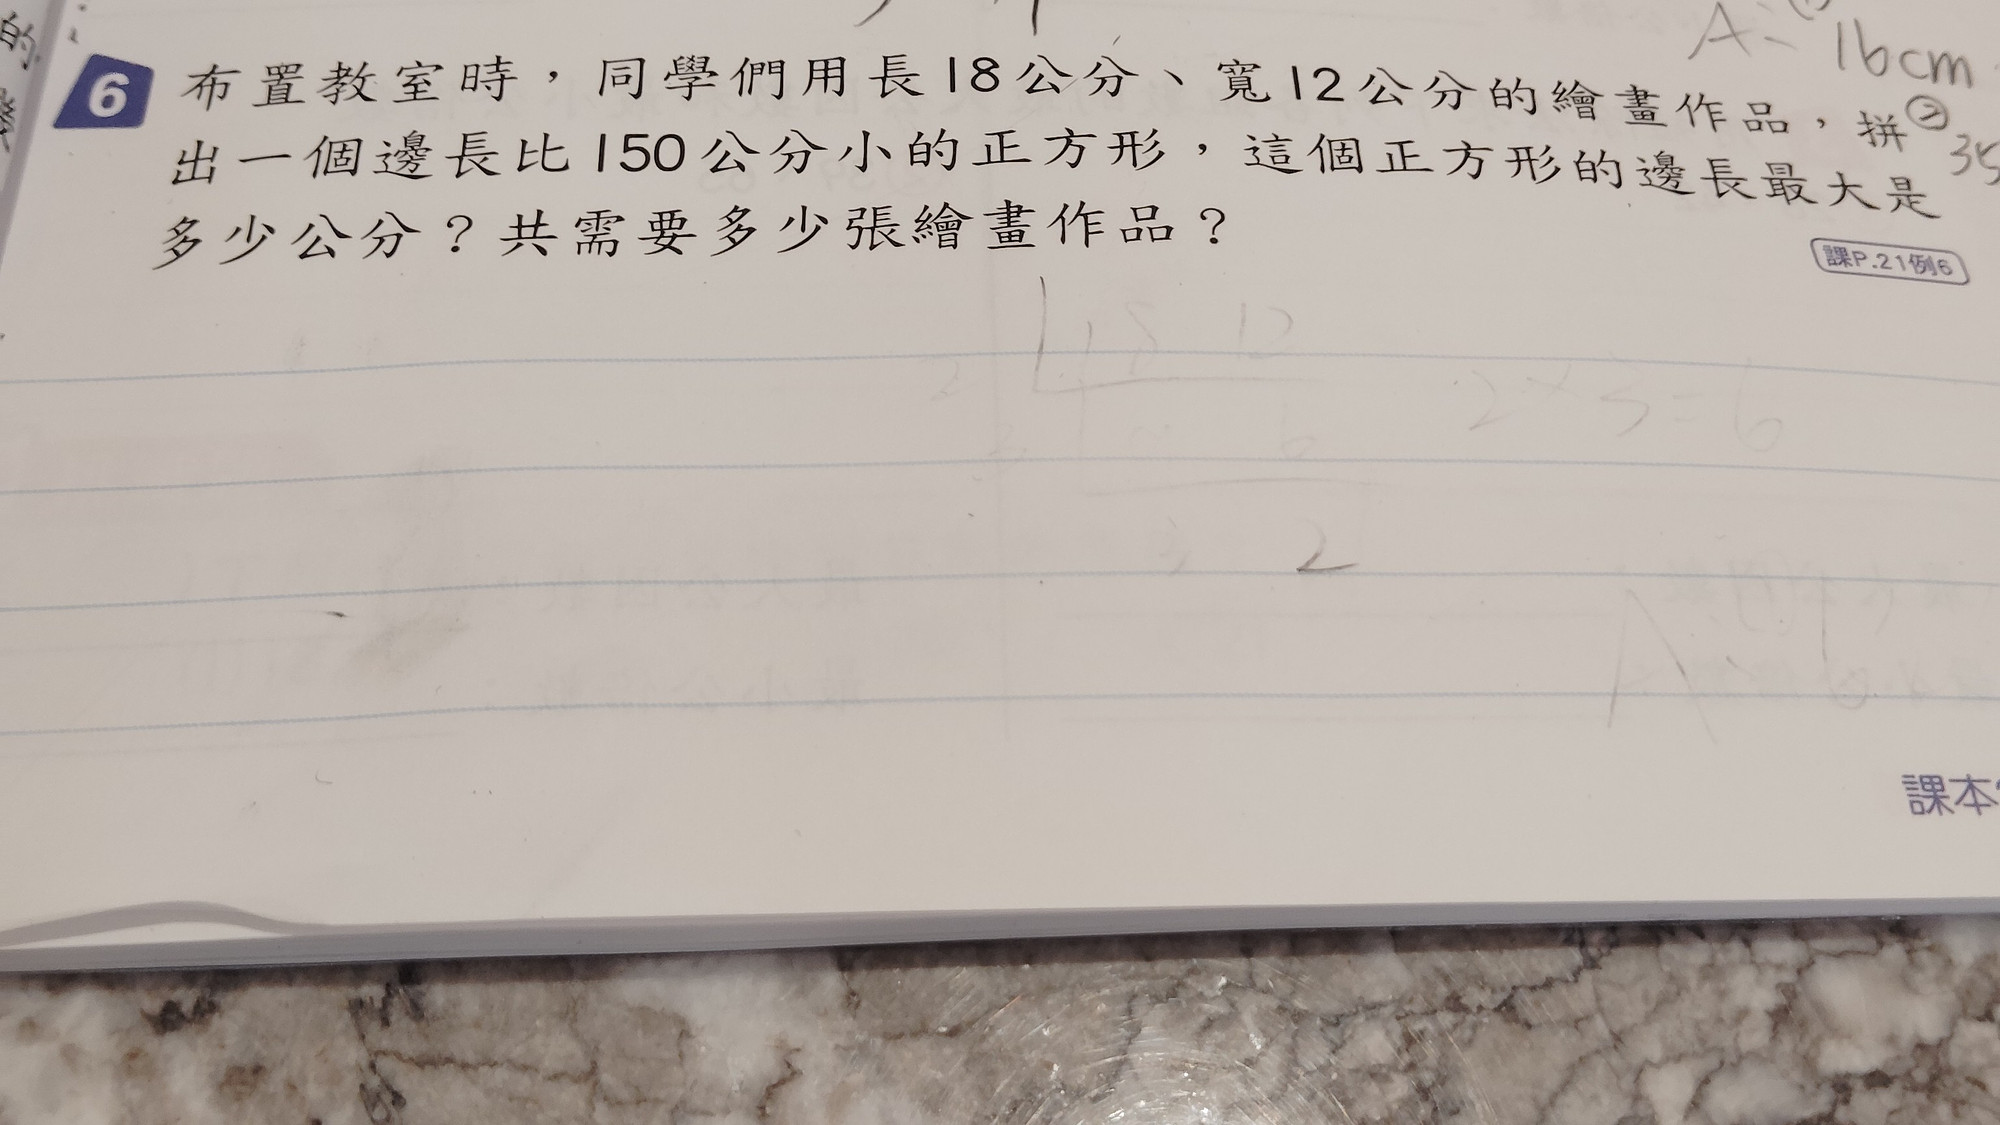 的
A: ①
16cm
6 布置教室時，同學們用長18公分、寬12公分的繪畫作品，拼
② 35
出一個邊長比150公分小的正方形，這個正方形的邊長最大是
多少公分？共需要多少張繪畫作品？
課P.21例6
18 12
2
2×3=6
6
2
課本